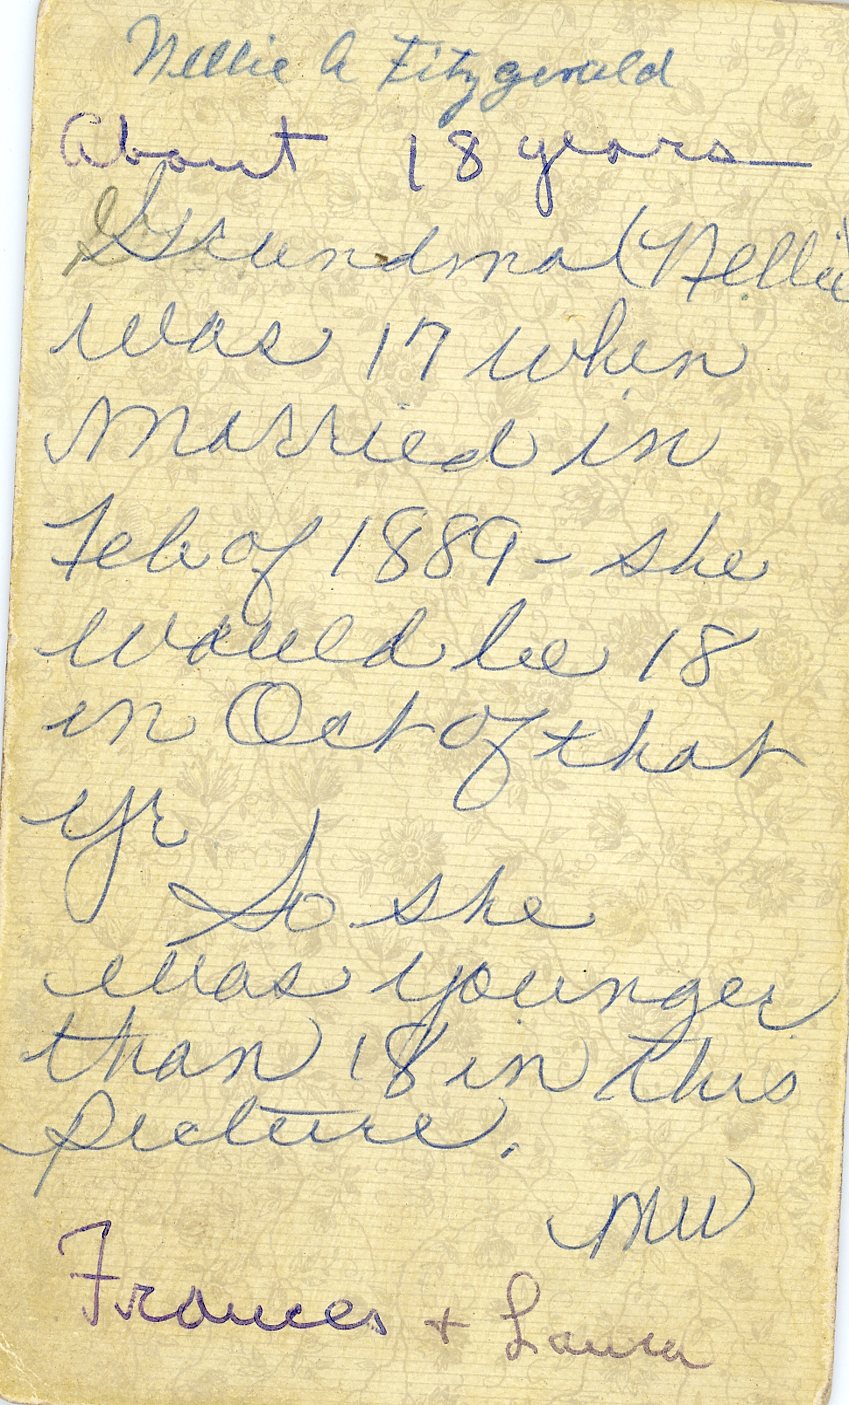 Nellie A Fitzgerald
About 18 years
Grandma (Nellie)
was 17 when
married in
Feb of 1889 - she
would be 18
in Oct of that
yr
So she
was younger
than 18 in this
picture.
MW
Frances + Laura